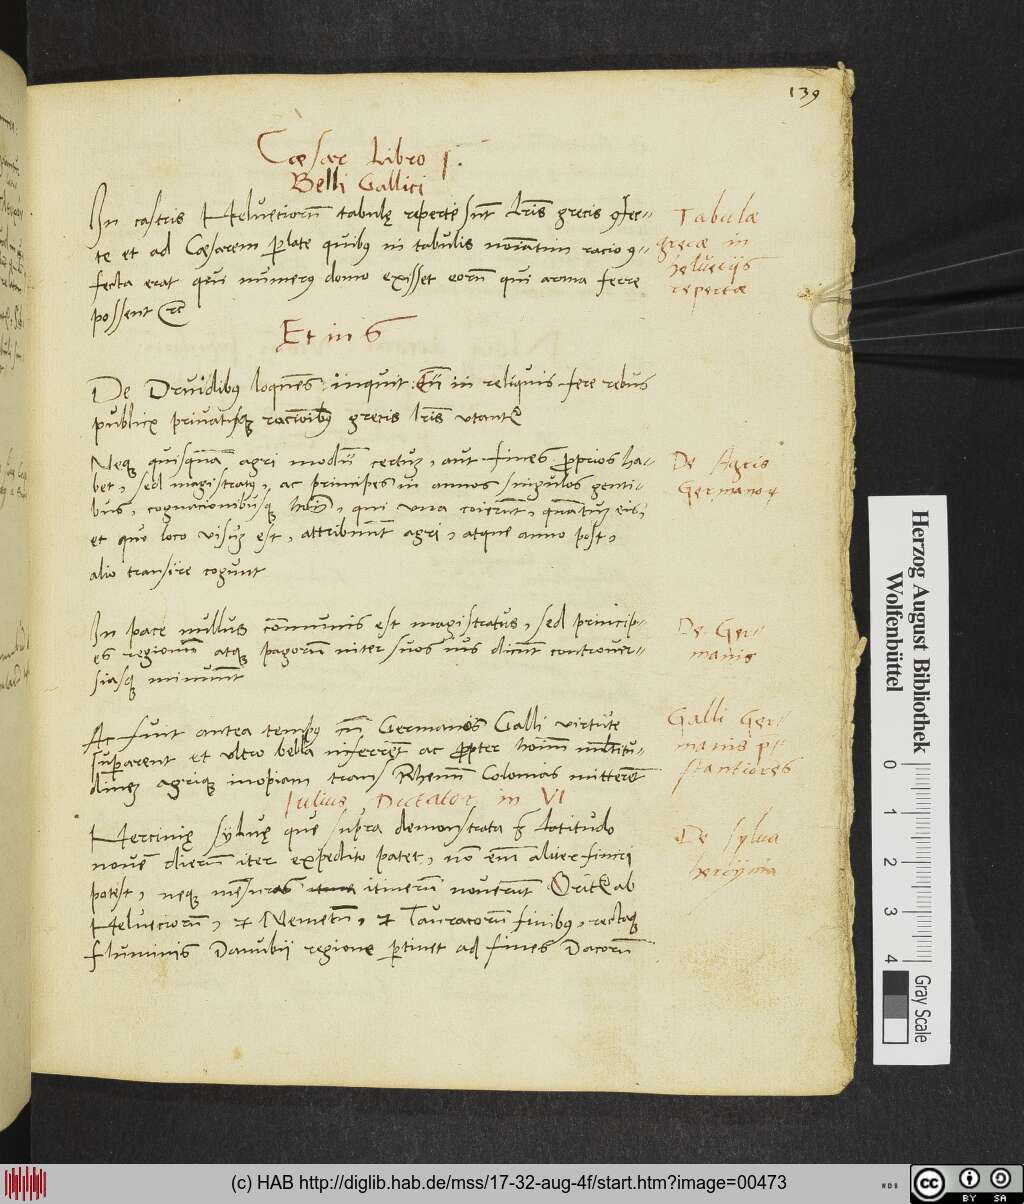 139
Cæsar Libro 1.
Belli Gallici
In castris Helueciorũ tabulę repertę sũt lr̃is grecis ꝯfec-
te et ad Cæsarem ꝑlate quibus in tabulis noīatim racio ꝯ-
fecta erat qui numerus domo exisset eorũ qui arma ferre
possent &c
Tabulæ
grecæ in
heluecijs
repertæ
Et in 6
De Druidibus loquens inquit cũ in reliquis fere rebus
publicis privatisqꝫ racionibus grecis lr̃is utantur
Neqꝫ quisquã agri modũ certuꝫ, aut fines proprios ha-
bet, sed magistratus, ac principes in annos singulos genti-
bus, cognacionibusqꝫ hoĩm, qui una coierũt, quãtuꝫ eis,
et quo loco visuꝫ est, attribuũt agri, atque anno post,
alio transire cogunt
De Agris
Germanoꝝ
In pace nullus cõmunis est magistratus, sed princip-
es regionũ atqꝫ pagorũ inter suos ius dicũt controuer-
siasqꝫ minuũt
De Ger-
manis
Ac fuit antea tempus cũ Germanos Galli virtute
suꝑarent et ultro bella inferrẽt ac propter hoĩm multitu-
dinẽ agrique inopiam trans Rhenũ Colonias mitterẽt
Galli Ger-
manis p̃-
stantiores
Julius Dictator in VI
Hercinię sylvę que supra demonstrata est latitudo
nouẽ dierũ iter expedito patet, nõ em̃ aliter finiri
potest, neqꝫ mẽsuras itinerũ nouerũt Oritur ab
Helueciorũ, et Nemetũ, et Tauracorũ finibus, rectaqꝫ
fluminis Danubii regione ꝑtinet ad fines Dacorũ
De sylva
hercynia
Herzog August Bibliothek
Wolfenbüttel
0 1 2 3 4
Gray Scale
(c) HAB http://diglib.hab.de/mss/17-32-aug-4f/start.htm?image=00473
cc BY SA